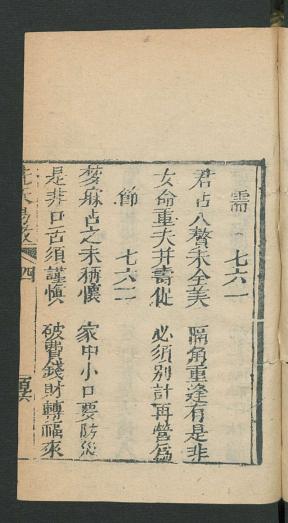 需 七六一
君占八贅未全美 隔角重逢有是非
女命重夫并壽促 必須別計再營為
節 七六二
夢寐占之未稱懷 家中小口要防災
是非口舌須謹慎 破費錢財轉福來
易數 四